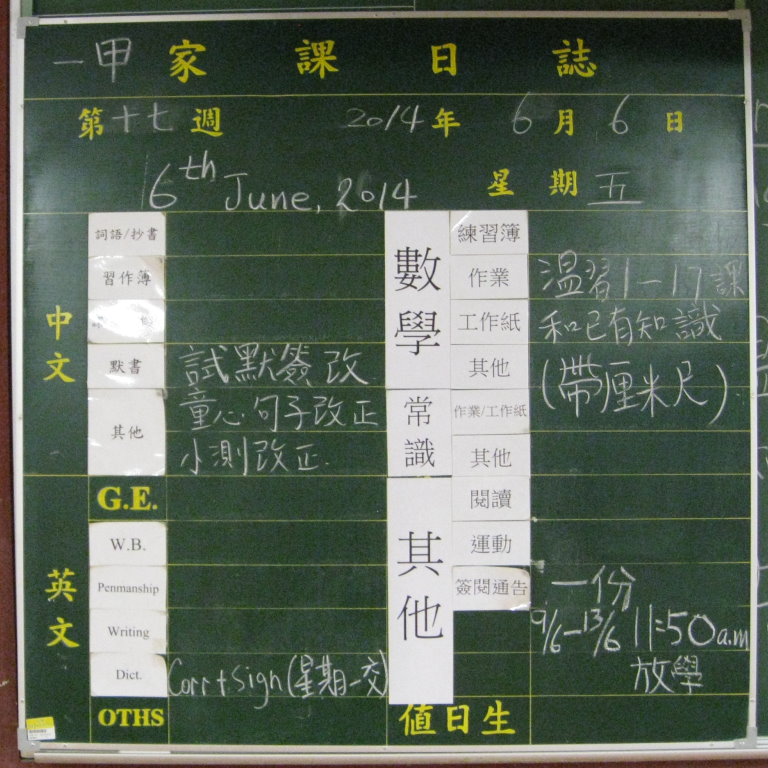 一甲 家課日誌
第十七週 2014年 6月 6日
16th June, 2014 星期五
中文
詞語/抄書
習作簿
默書 試默簽改
其他 童心句子改正
小測改正.
G.E.
英文
W.B.
Penmanship
Writing
Dict. Corr + Sign (星期一交)
OTHS
數學
練習簿
作業 温習1-17課
工作紙 和已有知識
其他 (帶厘米尺)
常識
作業/工作紙
其他
其他
閱讀
運動
簽閱通告 一份
9/6-13/6 11:50a.m
放學
值日生